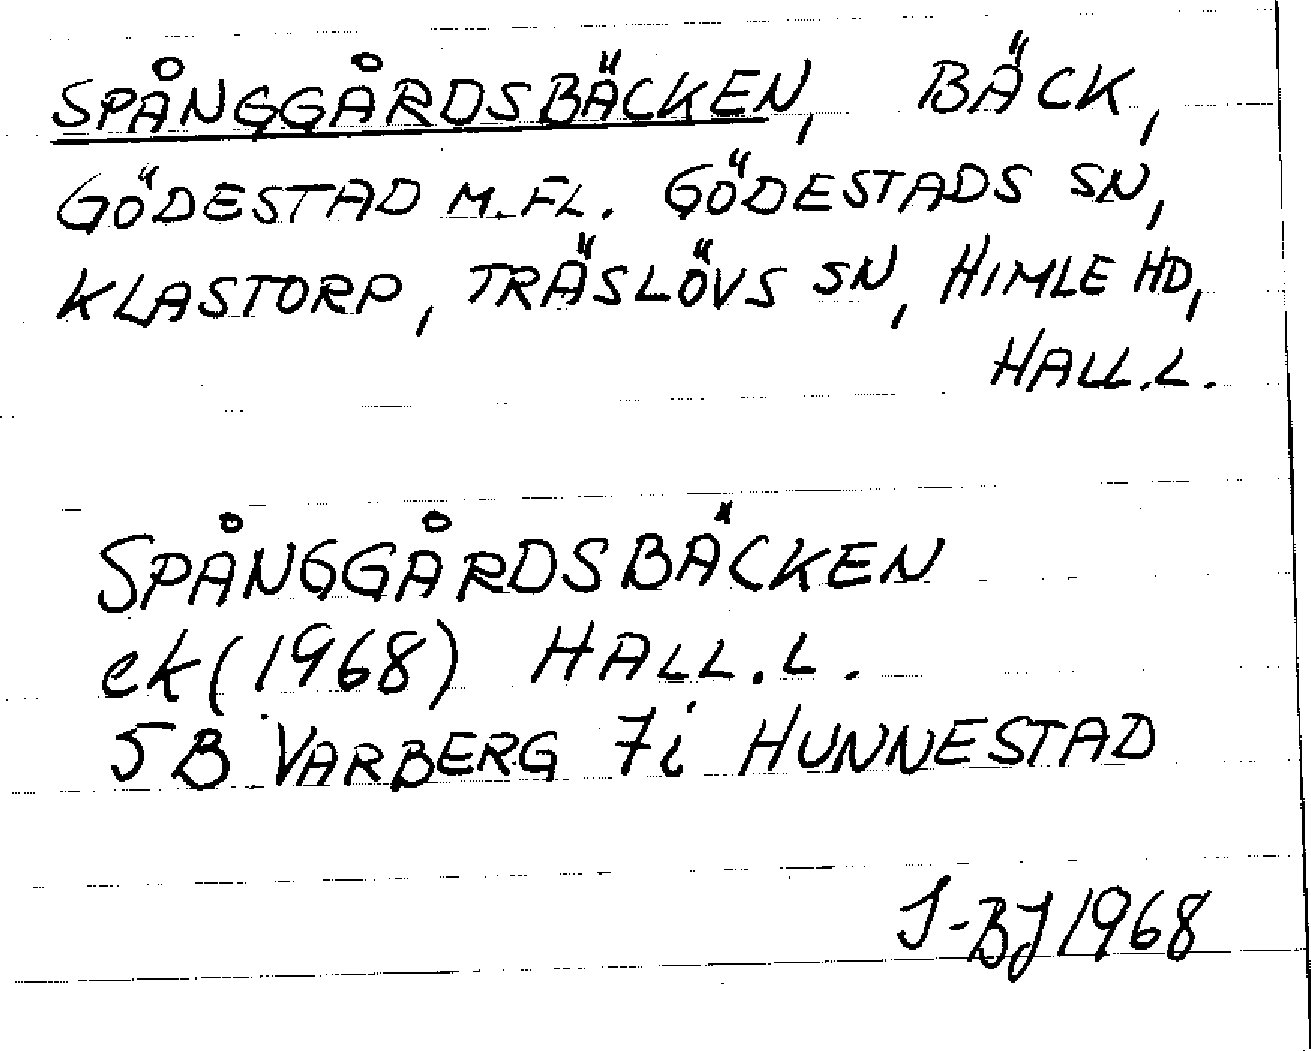 SPÅNGGÅRDSBÄCKEN, BÄCK,
GÖDESTAD M.FL. GÖDESTADS SN,
KLASTORP, TRÄSLÖVS SN, HIMLE HD,
HALL.L.
SPÅNGGÅRDSBÄCKEN
ek(1968) HALL.L.
5B VARBERG 7i HUNNESTAD
J-BJ 1968